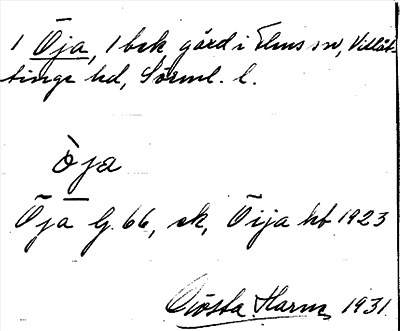 1 Öja, 1 bek gård i Flens sn, Villåt-
tinge hd, Sörml. l.
òja
Öja G 66, ek, Öija hb 1923
Gösta Harm, 1931.